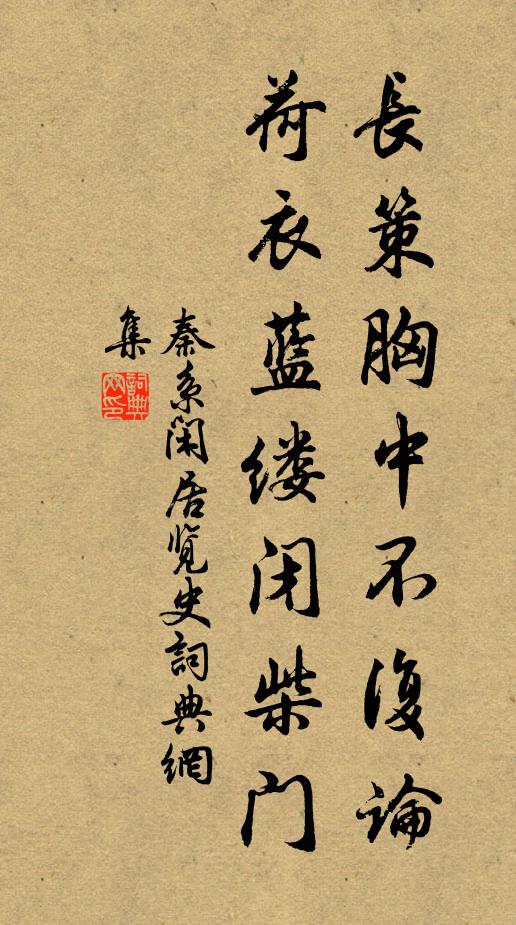 長策胸中不復論
荷衣藍缕闭柴门
秦系閑居览史詞典網
集
詞典網印